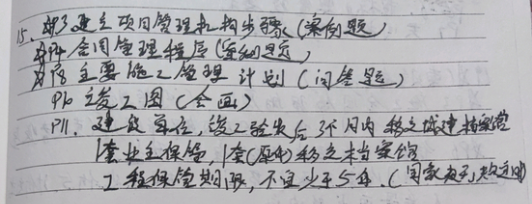 15、P3 建立项目管理机构步骤(案例题)
P4 合同管理程序(案例题)
P8 主要施工管理计划(问答题)
P10 竣工图(会画)
P11、建设单位,竣工验收后3个月内移交城建档案馆
1套业主保管,1套(原件)移交当地档案馆
工程保管期限,不宜少于5年.(国家有规定时)